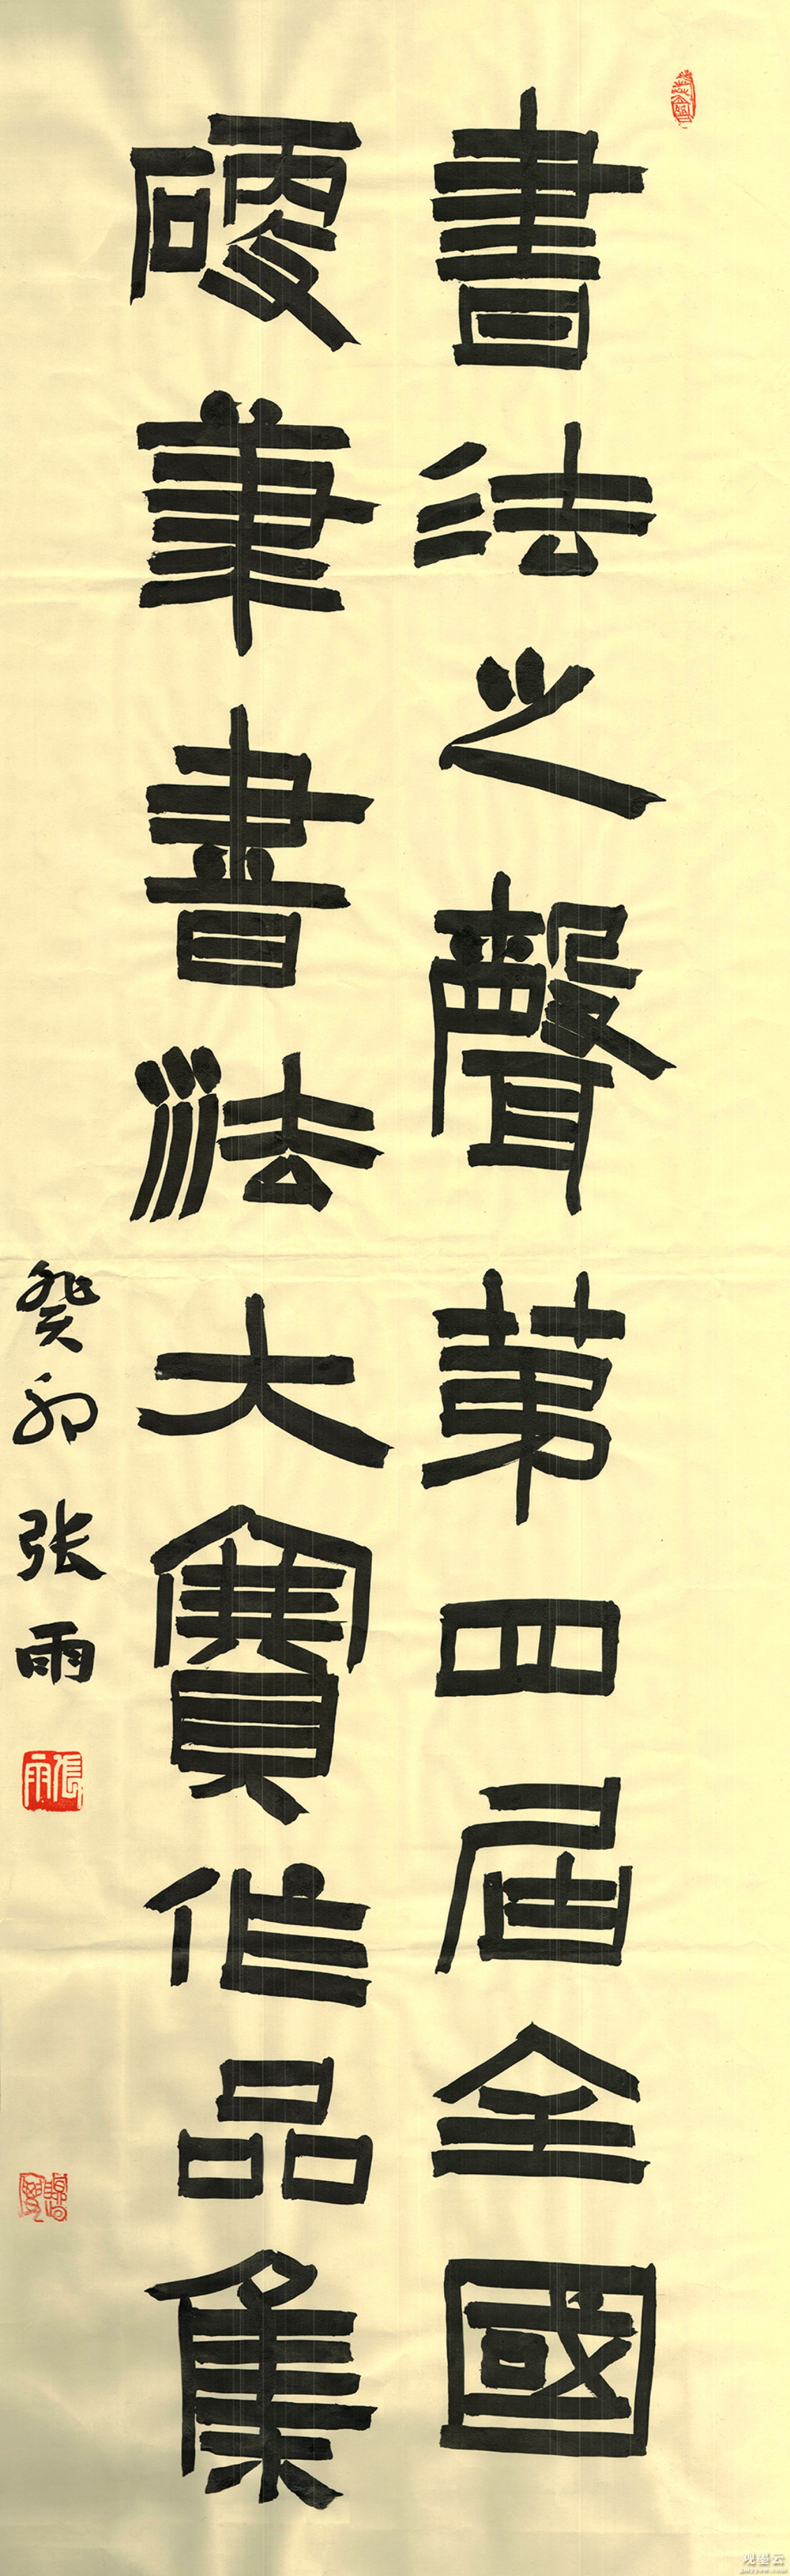 書法之聲第四屆全國
硬筆書法大賽作品集
癸卯张雨
張雨
观墨云